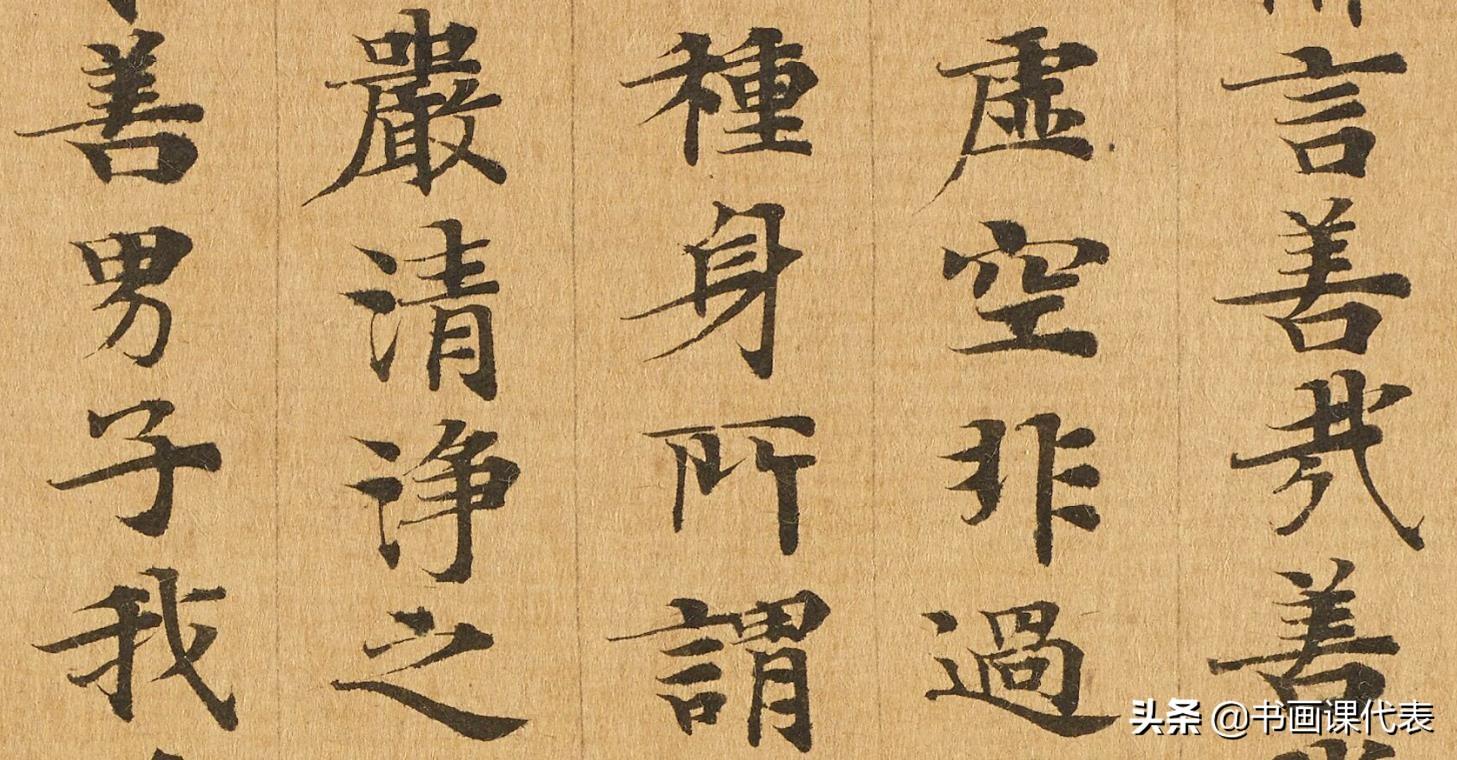 言善哉善
虚空非過
種身所謂
嚴清浄之
善男子我
头条 @书画课代表